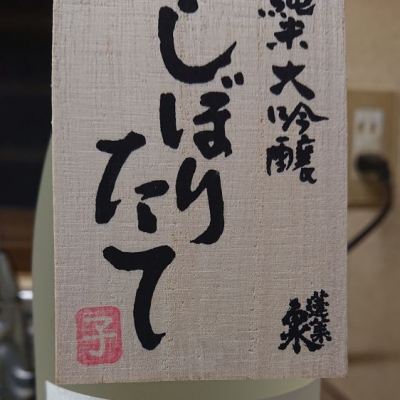 純米大吟醸
しぼり
たて
蓬莱
泉
子